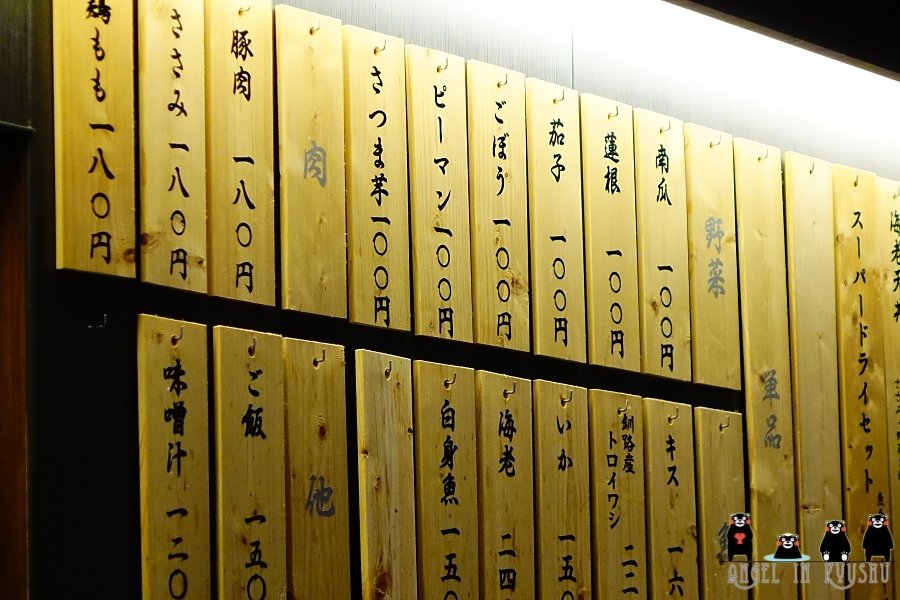 海老天丼
スーパードライセット
単品
野菜
南瓜 一〇〇円
蓮根 一〇〇円
茄子 一〇〇円
ごぼう 一〇〇円
ピーマン 一〇〇円
さつま芋 一〇〇円
肉
豚肉 一八〇円
ささみ 一八〇円
鶏もも 一八〇円
キス 一六
釧路産
トロイワシ 二二
いか 一五〇
海老 二四
白身魚 一五〇
他
ご飯 一五〇
味噌汁 一二〇
ANGEL IN KYUSHU